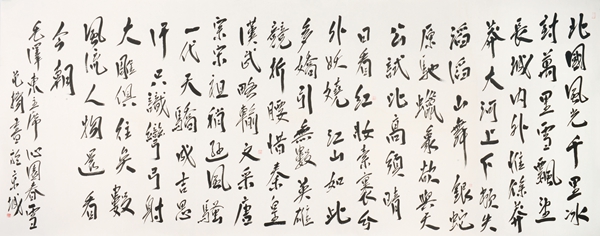 北國風光千里冰
封萬里雪飄望
長城内外惟餘莽
莽大河上下頓失
滔滔山舞銀蛇
原馳蠟象欲與天
公試比高須晴
日看紅妝素裹分
外妖嬈江山如此
多嬌引無數英雄
競折腰惜秦皇
漢武略輸文采唐
宗宋祖稍遜風騷
一代天驕成吉思
汗只識彎弓射
大雕俱往矣數
風流人物還看
今朝
毛澤東主席沁園春雪
書於京城